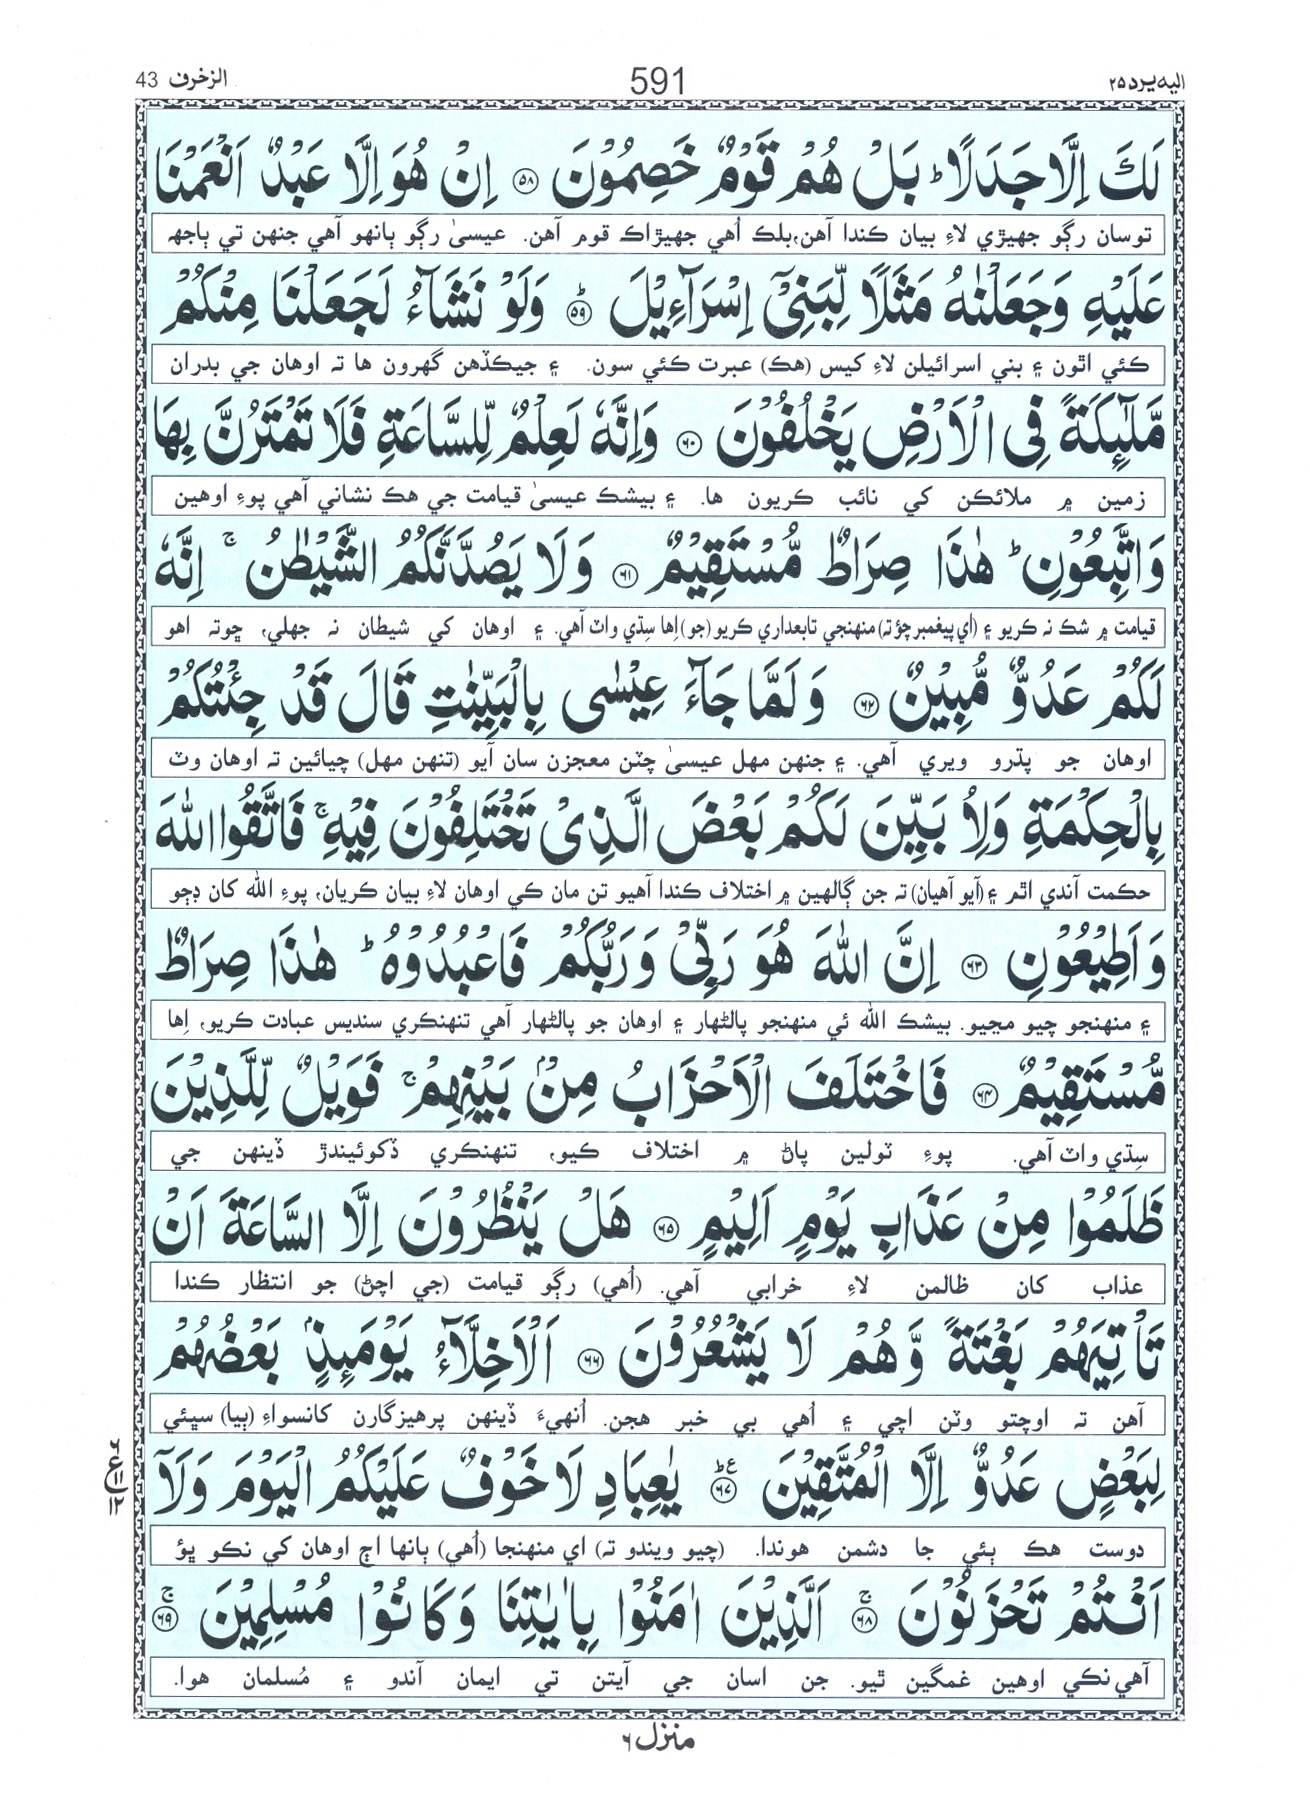 اليه يرد ٢٥
591
الزخرف 43
لَكَ اِلَّا جَدَلًا ؕ بَلْ هُمْ قَوْمٌ خَصِمُوْنَ ﴿۵۸﴾ اِنْ هُوَ اِلَّا عَبْدٌ اَنْعَمْنَا
توسان رڳو جهيڙي لاءِ بيان ڪندا آهن، بلڪ اُهي جهيڙاڪ قوم آهن. عيسىٰ رڳو ٻانهو آهي جنهن تي ٻاجهہ
عَلَيْهِ وَجَعَلْنٰهُ مَثَلًا لِّبَنِيْۤ اِسْرَآءِيْلَ ﴿۵۹﴾ؕ وَلَوْ نَشَآءُ لَجَعَلْنَا مِنْكُمْ
ڪئي اٿون ۽ بني اسرائيلن لاءِ کيس (هڪ) عبرت ڪئي سون. ۽ جيڪڏهن گهرون ها تہ اوهان جي بدران
مَّلٰٓئِكَةً فِي الْاَرْضِ يَخْلُفُوْنَ ﴿۶۰﴾ وَاِنَّهٗ لَعِلْمٌ لِّلسَّاعَةِ فَلَا تَمْتَرُنَّ بِهَا
زمين ۾ ملائڪن کي نائب ڪريون ها. ۽ بيشڪ عيسىٰ قيامت جي هڪ نشاني آهي پوءِ اوهين
وَاتَّبِعُوْنِ ؕ هٰذَا صِرَاطٌ مُّسْتَقِيْمٌ ﴿۶۱﴾ وَلَا يَصُدَّنَّكُمُ الشَّيْطٰنُ ۚ اِنَّهٗ
قيامت ۾ شڪ نہ ڪريو ۽ (اي پيغمبر چؤ تہ) منهنجي تابعداري ڪريو (جو) اِها سِڌي واٽ آهي. ۽ اوهان کي شيطان نہ جهلي، ڇوتہ اهو
لَكُمْ عَدُوٌّ مُّبِيْنٌ ﴿۶۲﴾ وَلَمَّا جَآءَ عِيْسٰى بِالْبَيِّنٰتِ قَالَ قَدْ جِئْتُكُمْ
اوهان جو پڌرو ويري آهي. ۽ جنهن مهل عيسىٰ چٽن معجزن سان آيو (تنهن مهل) چيائين تہ اوهان وٽ
بِالْحِكْمَةِ وَلِاُبَيِّنَ لَكُمْ بَعْضَ الَّذِيْ تَخْتَلِفُوْنَ فِيْهِ ۚ فَاتَّقُوا اللّٰهَ
حڪمت آندي اٿم ۽ (آيو آهيان) تہ جن ڳالهين ۾ اختلاف ڪندا آهيو تن مان ڪي اوهان لاءِ بيان ڪريان، پوءِ الله کان ڊڄو
وَاَطِيْعُوْنِ ﴿۶۳﴾ اِنَّ اللّٰهَ هُوَ رَبِّيْ وَرَبُّكُمْ فَاعْبُدُوْهُ ؕ هٰذَا صِرَاطٌ
۽ منهنجو چيو مڃيو. بيشڪ الله ئي منهنجو پالڻهار ۽ اوهان جو پالڻهار آهي تنهنڪري سنديس عبادت ڪريو، اِها
مُّسْتَقِيْمٌ ﴿۶۴﴾ فَاخْتَلَفَ الْاَحْزَابُ مِنْۢ بَيْنِهِمْ ۚ فَوَيْلٌ لِّلَّذِيْنَ
سِڌي واٽ آهي. پوءِ ٽولين پاڻ ۾ اختلاف ڪيو، تنهنڪري ڏکوئيندڙ ڏينهن جي
ظَلَمُوْا مِنْ عَذَابِ يَوْمٍ اَلِيْمٍ ﴿۶۵﴾ هَلْ يَنْظُرُوْنَ اِلَّا السَّاعَةَ اَنْ
عذاب کان ظالمن لاءِ خرابي آهي. (اُهي) رڳو قيامت (جي اچڻ) جو انتظار ڪندا
تَاْتِيَهُمْ بَغْتَةً وَّهُمْ لَا يَشْعُرُوْنَ ﴿۶۶﴾ اَلْاَخِلَّآءُ يَوْمَئِذٍۭ بَعْضُهُمْ
آهن تہ اوچتو وٽن اچي ۽ اُهي بي خبر هجن. اُنهيءَ ڏينهن پرهيزگارن کانسواءِ (ٻيا) سڀئي
لِبَعْضٍ عَدُوٌّ اِلَّا الْمُتَّقِيْنَ ﴿۶۷﴾ؕع يٰعِبَادِ لَا خَوْفٌ عَلَيْكُمُ الْيَوْمَ وَلَاۤ
دوست هڪ ٻئي جا دشمن هوندا. (چيو ويندو تہ) اي منهنجا (اُهي) ٻانها اڄ اوهان کي نڪو ڀؤ
اَنْتُمْ تَحْزَنُوْنَ ﴿۶۸﴾ۚ اَلَّذِيْنَ اٰمَنُوْا بِاٰيٰتِنَا وَكَانُوْا مُسْلِمِيْنَ ﴿۶۹﴾ۚ
آهي نڪي اوهين غمگين ٿيو. جن اسان جي آيتن تي ايمان آندو ۽ مُسلمان هوا.
منزل ٦